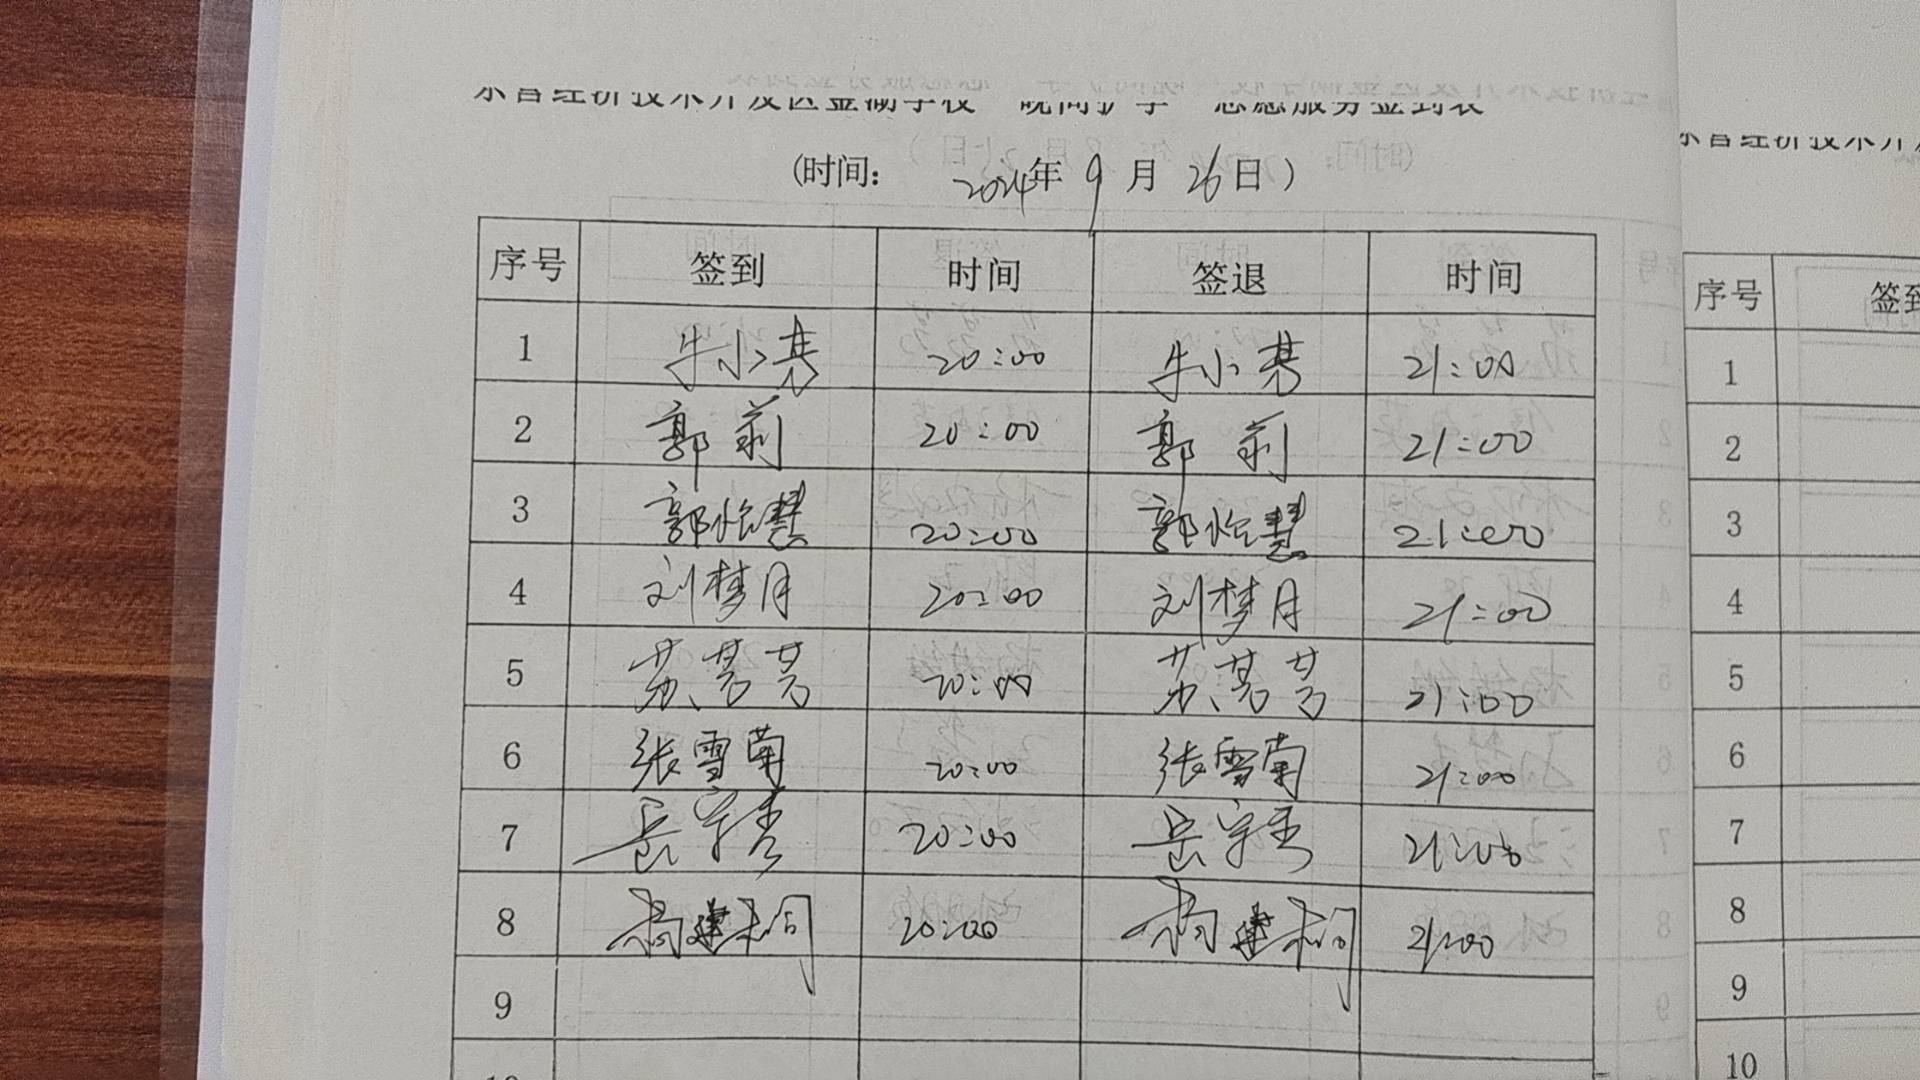 东营经济技术开发区金湖学校“晚间护学”志愿服务签到表
(时间: 2024年 9 月 26日)
序号 签到 时间 签退 时间
1 牛小 20:00 牛小 21:00
2 郭莉 20:00 郭莉 21:00
3 郭怡慧 20:00 郭怡慧 21:00
4 刘梦月 20:00 刘梦月 21:00
5 苏 20:00 苏 21:00
6 张雪菊 20:00 张雪菊 21:00
7 岳 20:00 岳 21:00
8 杨建桐 20:00 杨建桐 21:00
9
10
东营经济技术开
序号 签到
1
2
3
4
5
6
7
8
9
10